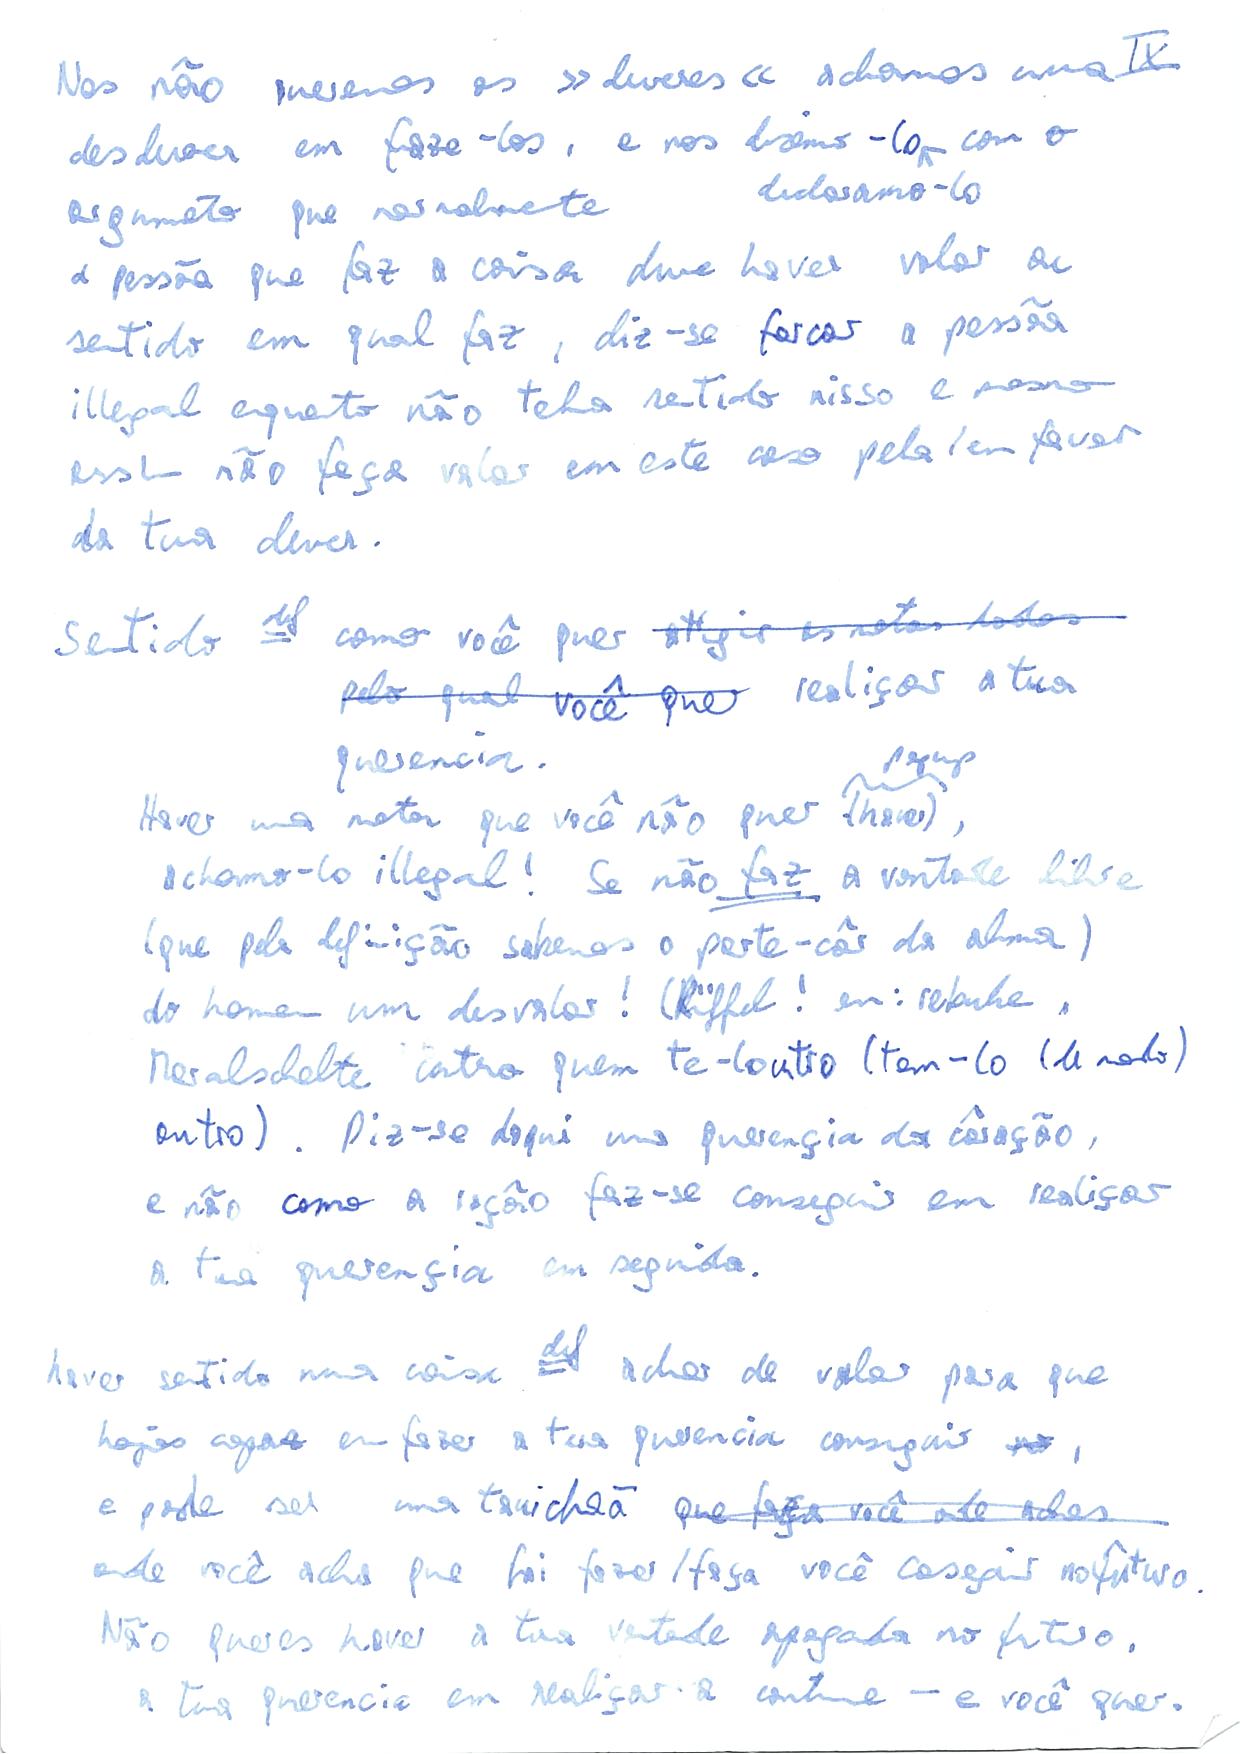 IX
Nos não queremos os »deveres« achamos uma
desdever em faze-los, e nos disémo-lo com o
declaramo-lo
argumeto que normalmete
a pessõa que faz a coisa deve haver valor ao
sentido em qual faz, diz-se forcar a pessõa
illegal enquato não teha sentido nisso e mesmo
assim não faça valor em este caso pela/em favor
da tua dever.
Sentido def como você quer attigir as notas todas
pelo qual você quer realiçar a tua
querencia.
Haver uma nota que você não quer (haver),
achamo-lo illegal! Se não faz a vontade libre
(que pela definição sabemos o parte-côr da alma)
do homem um desvalor! (Rüffel! em: retouche,
Moralschelte contra quem te-lo outro (tem-lo (de modo)
outro). Diz-se daqui uma querençia da côração,
e não como a ração faz-se conseguir em realiçar
a tua querençia em seguida.
haver sentido numa coisa def achar de valor para que
hajas capaz em fazer a tua querencia conseguir,
e pode ser uma que faça você onde achas
onde você acha que foi fazer/faça você coseguir no fûturo.
Não queres haver a tua vontade apagada no futuro,
a tua querencia em realiçar-a continue – e você quer.